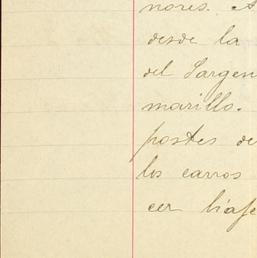 nores. A
desde la
del Sargen
marillo.
postes de
los carros
cer biaje